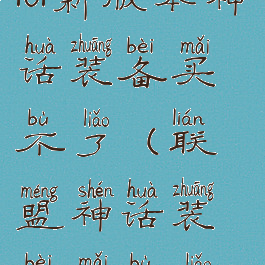 lol新版本神
huà zhuāng bèi mǎi
话装备买
bù liǎo lián
不了（联
méng shén huà zhuāng
盟神话装
bèi mǎi bù liǎo